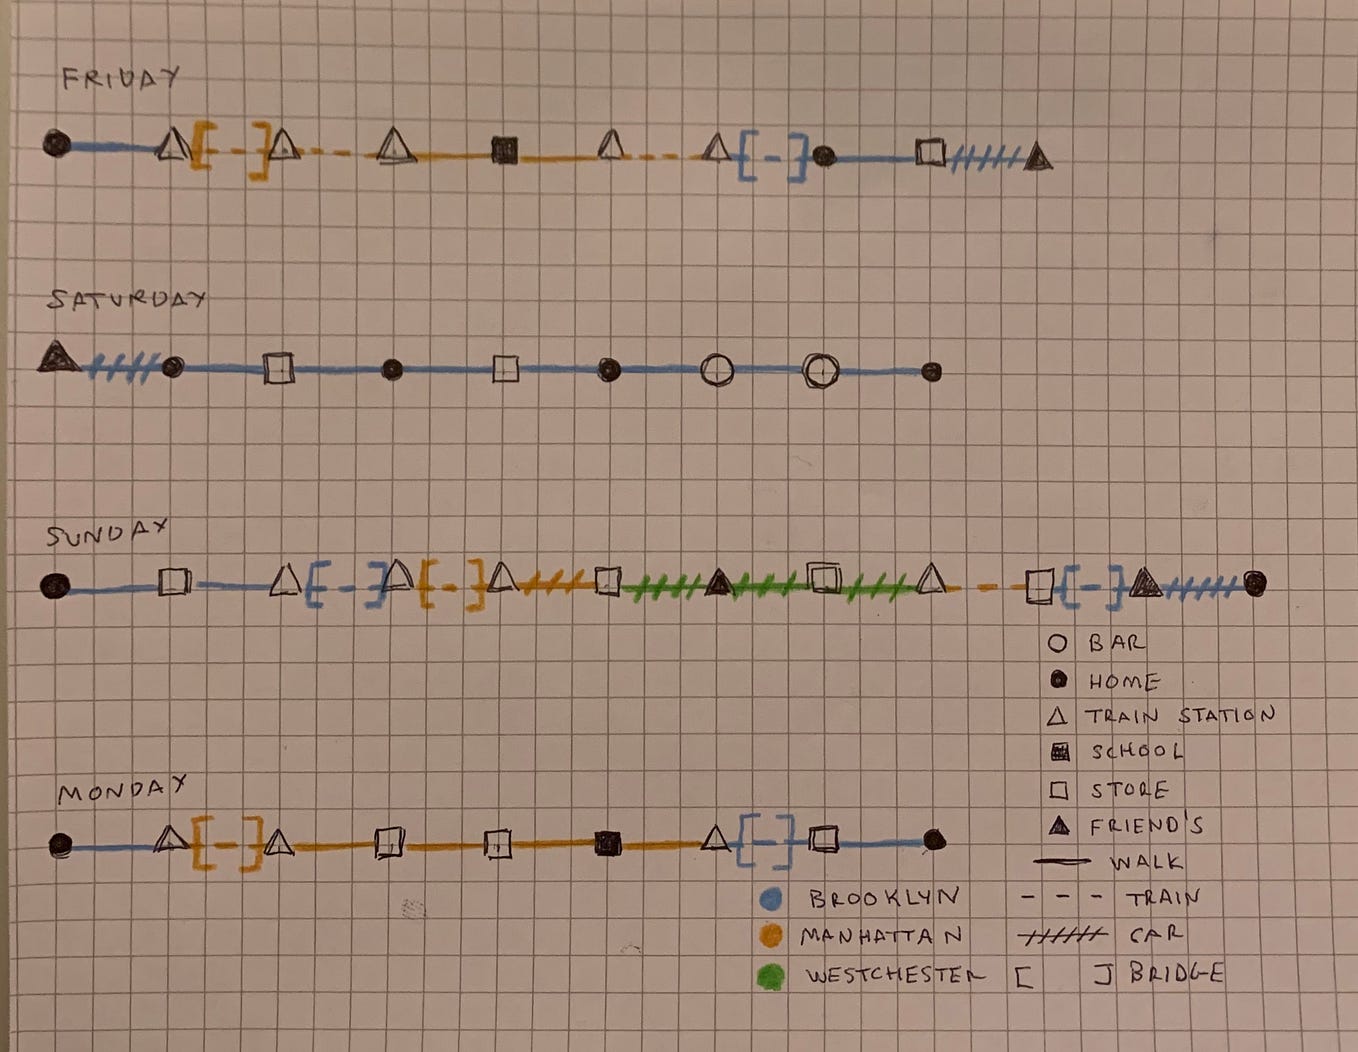 FRIDAY
SATURDAY
SUNDAY
BAR
HOME
TRAIN STATION
SCHOOL
STORE
FRIEND'S
WALK
TRAIN
CAR
BRIDGE
MONDAY
BROOKLYN
MANHATTAN
WESTCHESTER